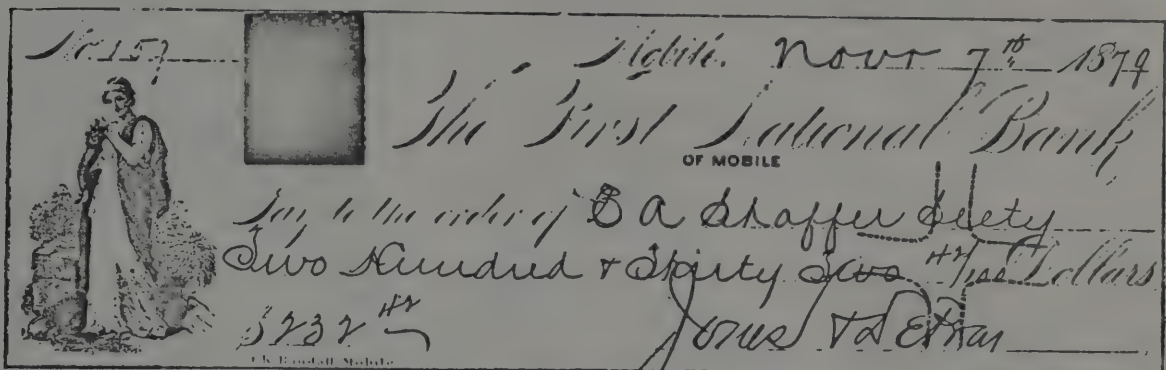 No 157 Mobile, Novr 7th 1879
The First National Bank
OF MOBILE
Pay to the order of A Shaffer
Two Hundred & Thirty Two 42/100 Dollars
$232 42
Jones
Randall Mobile